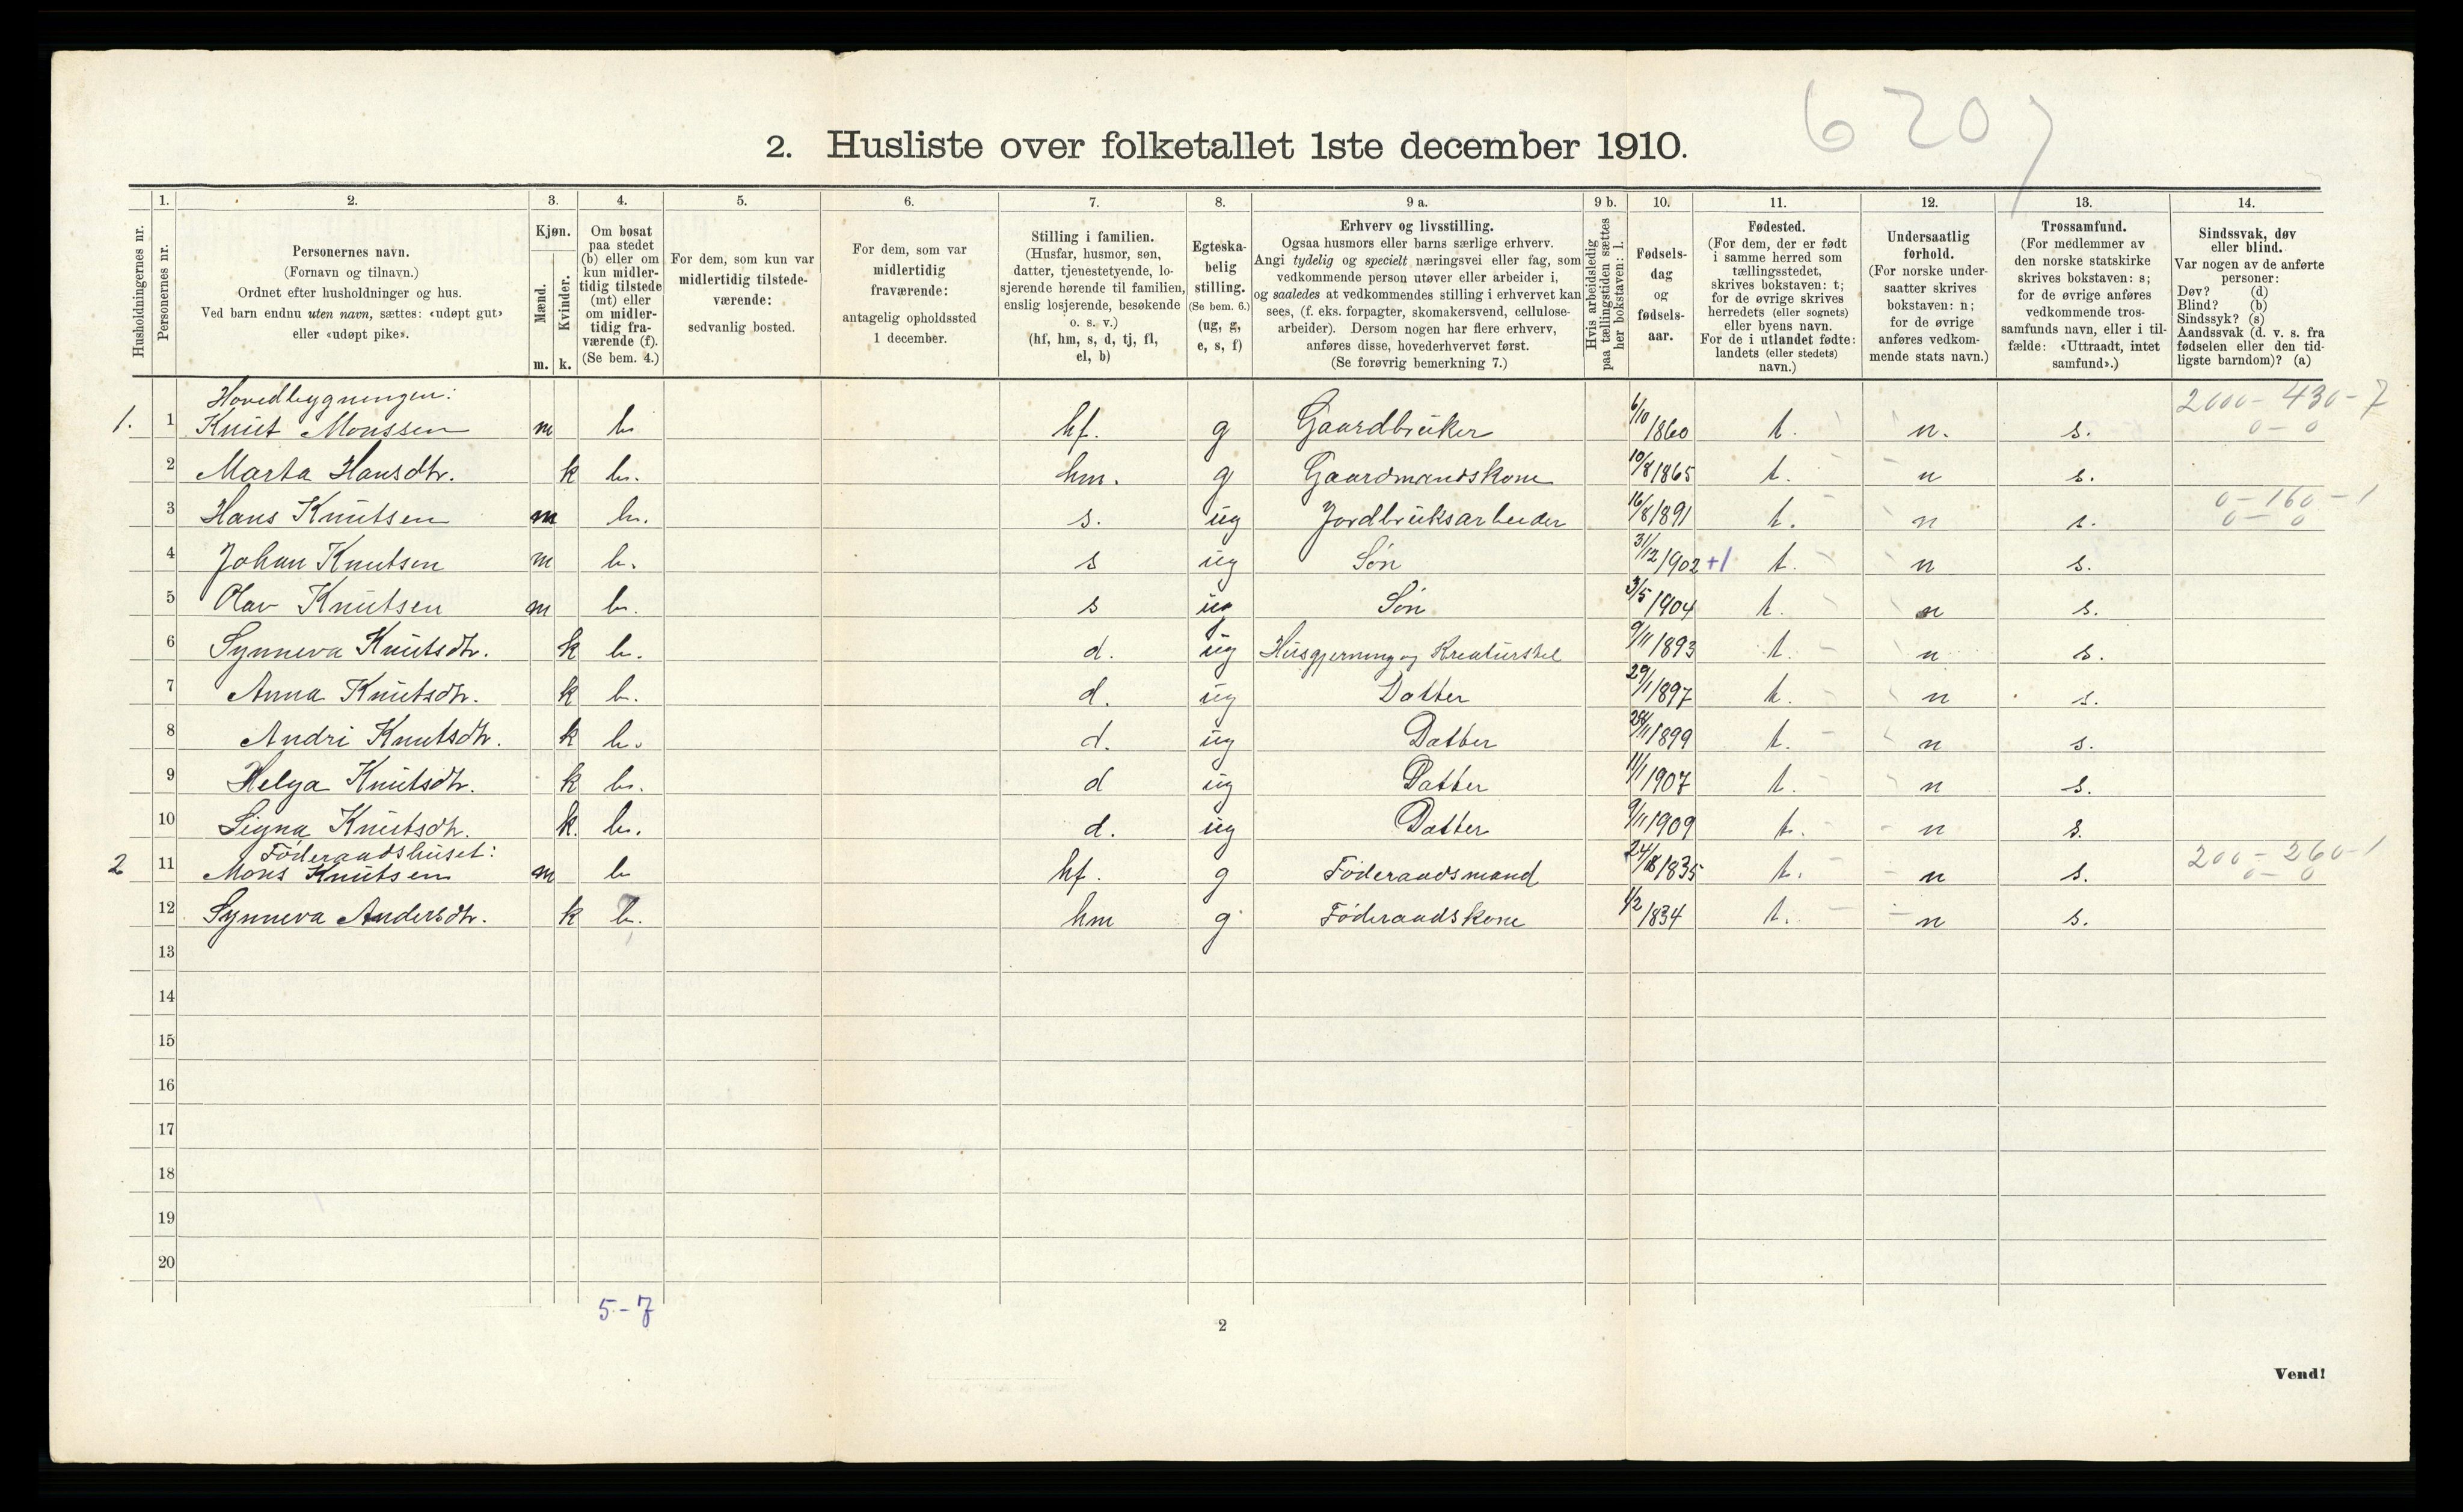 6207
2. Husliste over folketallet 1ste december 1910.
Husholdningernes nr.
1. Personernes nr.
2. Personernes navn.
(Fornavn og tilnavn.)
Ordnet efter husholdninger og hus.
Ved barn endnu uten navn, sættes: «udøpt gut»
eller «udøpt pike».
3. Kjøn.
Mænd. m.
Kvinder. k.
4. Om bosat
paa stedet
(b) eller om
kun midler-
tidig tilstede
(mt) eller
om midler-
tidig fra-
værende (f).
(Se bem. 4.)
5. For dem, som kun var
midlertidig tilstede-
værende:
sedvanlig bosted.
6. For dem, som var
midlertidig
fraværende:
antagelig opholdssted
1 december.
7. Stilling i familien.
(Husfar, husmor, søn,
datter, tjenestetyende, lo-
sjerende hørende til familien,
enslig losjerende, besøkende
o. s. v.)
(hf, hm, s, d, tj, fl,
el, b)
8. Egteska-
belig
stilling.
(Se bem. 6.)
(ug, g,
e, s, f)
9 a. Erhverv og livsstilling.
Ogsaa husmors eller barns særlige erhverv.
Angi tydelig og specielt næringsvei eller fag, som
vedkommende person utøver eller arbeider i,
og saaledes at vedkommendes stilling i erhvervet kan
sees, (f. eks. forpagter, skomakersvend, cellulose-
arbeider). Dersom nogen har flere erhverv,
anføres disse, hovederhvervet først.
(Se forøvrig bemerkning 7.)
9 b. Hvis arbeidsledig
paa tællingstiden sættes
her bokstaven: l.
10. Fødsels-
dag
og
fødsels-
aar.
11. Fødested.
(For dem, der er født
i samme herred som
tællingsstedet,
skrives bokstaven: t;
for de øvrige skrives
herredets (eller sognets)
eller byens navn.
For de i utlandet fødte:
landets (eller stedets)
navn.)
12. Undersaatlig
forhold.
(For norske under-
saatter skrives
bokstaven: n;
for de øvrige
anføres vedkom-
mende stats navn.)
13. Trossamfund.
(For medlemmer av
den norske statskirke
skrives bokstaven: s;
for de øvrige anføres
vedkommende tros-
samfunds navn, eller i til-
fælde: «Uttraadt, intet
samfund».)
14. Sindssvak, døv
eller blind.
Var nogen av de anførte
personer:
Døv? (d)
Blind? (b)
Sindssyk? (s)
Aandssvak (d. v. s. fra
fødselen eller den tid-
ligste barndom)? (a)
Hovedbygningen: 2000 - 430 - 7
1. 1 Knut Monssen m b hf. g Gaardbruker 6/10 1860 t. n. s. 0 - 0
2 Marta Hansdtr. k b. hm. g Gaardmandskone 10/8 1865 t. n s.
3 Hans Knutsen m b. s. ug Jordbruksarbeider 16/8 1891 t. n s. 0 - 160 - 1
0 - 0
4 Johan Knutsen m b. s ug Søn 31/12 1902 +1 t. n s.
5 Olav Knutsen m b. s ug Søn 3/5 1904 t. n s.
6 Synneva Knutsdtr. k b. d. ug Husgjerning og Kreaturstel 9/11 1893 t. n s.
7 Anna Knutsdtr. k b. d. ug Datter 29/1 1897 t. n s.
8 Andri Knutsdtr. k b. d. ug Datter /11 1899 t. n s.
9 Helga Knutsdtr. k b. d ug Datter 11/1 1907 t. n s.
10 Signa Knutsdtr. k. b. d. ug Datter 9/11 1909 t. n s.
Föderaadshuset: 200 - 260 - 1
2 11 Mons Knutsen m b hf. g Föderaadsmand 24/8 1835 t. n s. 0 - 0
12 Synneva Andersdtr. k b. hm g Föderaadskone 1/2 1834 t. n s.
13
14
15
16
17
18
19
20
5 - 7
2
Vend!